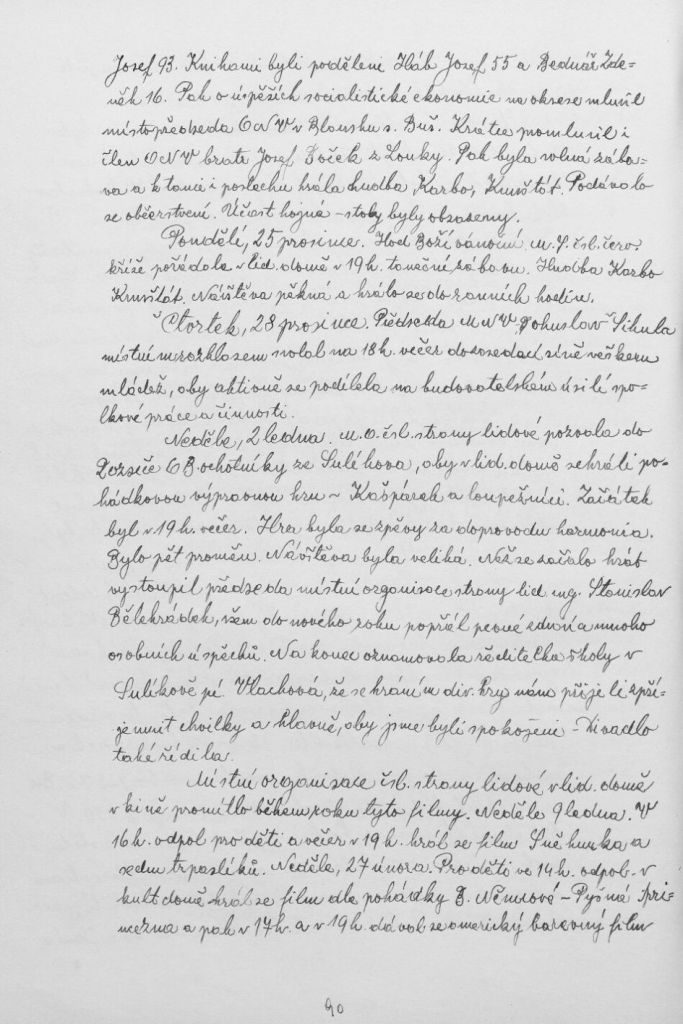 Josef 93. Knihami byli poděleni Háb Josef 55 a Bednář Zde=
něk 16. Pak o úspěších socialistické ekonomie na okrese mluvil
místopředseda ONV v Blansku s. Buš. Krátce promluvil i
člen ONV bratr Josef Toček z Louky. Pak byla volná zába=
va a k tanci i poslechu hrála hudba Karbo, Kunštát. Podávalo
se občerstvení. Účast hojná - stoly byly obsazeny.
Pondělí, 25 prosince. Hod Boží vánoční. M. S. čsl. červ.
kříže pořádala v lid. domě v 19 h. taneční zábavu. Hudba Karbo
Kunštát. Návštěva pěkná a hrálo se do ranních hodin.
Čtvrtek, 28 prosince. Předseda MNV Bohuslav Sihula
místním rozhlasem svolal na 18 h. večer do zasedací síně veškerou
mládež, aby aktivně se podílela na budovatelském úsilí spo=
lkové práce a činnosti.
Neděle, 2 ledna. M. O. čsl. strany lidové pozvala do
Rozseče OB ochotníky ze Sulíkova, aby v lid. domě sehráli po=
hádkovou výpravnou hru ~ Kašpárek a loupežníci. Začátek
byl v 19 h. večer. Hra byla se zpěvy za doprovodu harmonia.
Bylo pět proměn. Návštěva byla veliká. Než se začalo hrát
vystoupil předseda místní organisace strany lid. ing. Stanislav
Bělehrádek, všem do nového roku popřál pevné zdraví a mnoho
osobních úspěchů. Na konec oznamovala ředitelka školy v
Sulíkově pí. Vlachová, že sehráním div. hry nám přijeli zpří=
jemnit chvilky a hlavně, aby jsme byli spokojeni - Divadlo
také řídila.
Místní organisace čsl. strany lidové v lid. domě
v kině promítlo během roku tyto filmy. Neděle 9 ledna. V
16 h. odpol. pro děti a večer v 19 h. hrál se film Sněhurka a
sedm trpaslíků. Neděle, 27 února. Pro děti ve 14 h. odpol. v
kult. domě hrál se film dle pohádky B. Němcové - Pyšná pri=
ncezna a pak v 17 h. a v 19 h. dával se americký barevný film
90